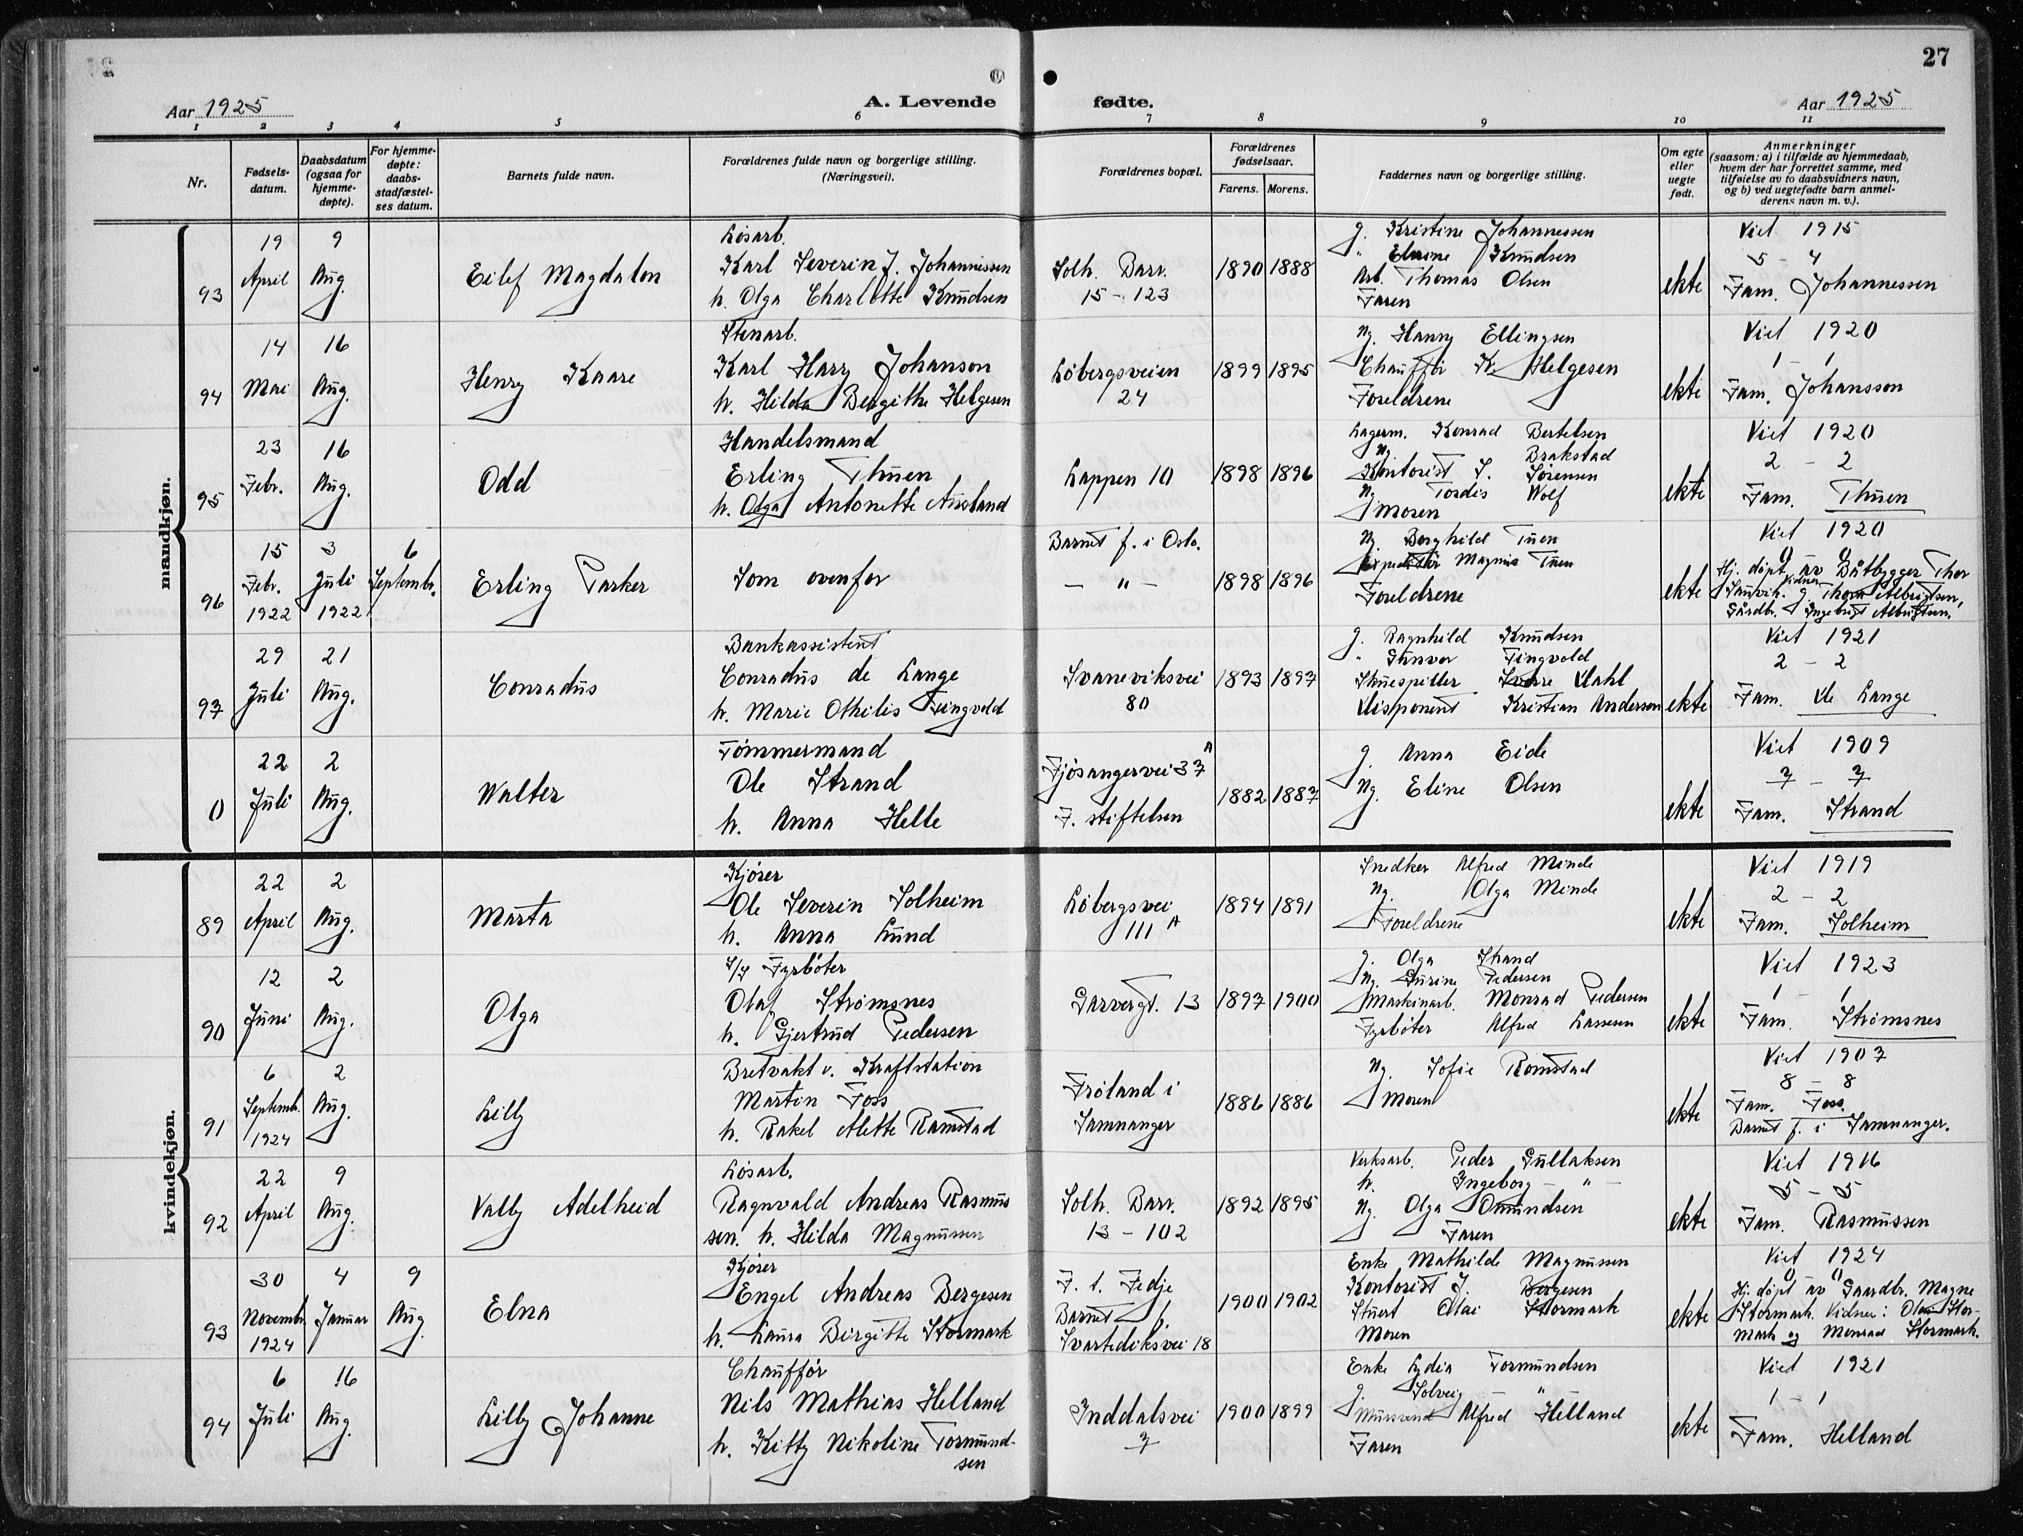 27
Aar 1925
A. Levende
fødte.
Aar 1925
1 2 3 4 5 6 7 8 9 10 11
Nr.
Fødsels-
datum.
Daabsdatum
(ogsaa for
hjemme-
døpte).
For hjemme-
døpte:
daabs-
stadfæstel-
ses datum.
Barnets fulde navn.
Forældrenes fulde navn og borgerlige stilling.
(Næringsvei).
Forældrenes bopæl.
Forældrenes
fødselsaar.
Farens. Morens.
Faddernes navn og borgerlige stilling.
Om egte
eller
uegte
født.
Anmerkninger
(saasom: a) i tilfælde av hjemmedaab,
hvem der har forrettet samme, med
tilføielse av to daabsvidners navn,
og b) ved uegtefødte barn anmel-
derens navn m. v.).
mandkjøn.
93
19
April
9
Aug.
Eilef Magdalon
Løsarb.
Karl Severin J. Johannessen
h. Olga Charlotte Knudsen
Solh. Barr.
15 - 123
1890 1888
g. Kristine Johannessen
" Knudsen
Arb. Thomas Olsen
Faren
ekte
Viet 1915
5 - 4
Fam. Johannessen
94
14
Mai
16
Aug.
Henry Kaare
Stenarb.
Karl Harry Johanson
h. Hilda Bergithe Helgesen
Løbergsveien
24
1899 1895
Ug. Hanny Ellingsen
Chauffør K. Helgesen
Foreldrene
ekte
Viet 1920
1 - 1
Fam. Johansson
95
23
Febr.
16
Aug.
Odd
Handelsmand
Erling Thuen
h. Olga Antonette Ausland
Lappen 10
1898 1896
Lagerm. Konrad Bertelsen
Ug. Brakstad
Kontorist S. Sørensen
Ug. Tordis Wolf
Moren
ekte
Viet 1920
2 - 2
Fam. Thuen
96
15
Febr.
1922
3
Juli
1922
6
Septembr.
Erling Parker
Som ovenfor
Barnet f. i Oslo.
— " —
1898 1896
Ug. Borghild Tuen
Magnus Tuen
Foreldrene
ekte
Viet 1920
0 - 0
Hj. døpt av Båtbygger Thor
Vidner
g. Thora Albrigtsen,
Gårdbr. Ingebrigt Albrigtsen.
97
29
Juli
21
Aug.
Conradus
Bankassistent
Conradus de Lange
h. Marie Othilis Tingvold
Svaneviksvei
80
1893 1897
g. Ragnhild Knudsen
" Gunvor Tingvold
Skuespiller Sverre Dahl
Disponent Kristian Andersen
ekte
Viet 1921
2 - 2
Fam. de Lange
0
22
Juli
2
Aug.
Walter
Tømmermand
Ole Strand
h. Anna Helle
Fjøsangervei 37 A
F. stiftelsen
1882 1887
g. Anna Eide
Ug. Eline Olsen
ekte
Viet 1909
7 - 7
Fam. Strand
kvindekjøn.
89
22
April
2
Aug.
Marta
Kjører
Ole Severin Solheim
h. Anna Lund
Løbergsvei
111 A
1894 1891
Snedker Alfred Minde
Ug. Olga Minde
Foreldrene
ekte
Viet 1919
2 - 2
Fam. Solheim
90
12
Juni
2
Aug.
Olga
Fyrbøter
Olaf Strømsnes
h. Gjertrud Pedersen
Garvergt. 13
1897 1900
g. Olga Strand
Ug. Gurine Pedersen
Maskinarb. Monrad Pedersen
Fyrbøter Alfred Lassesen
ekte
Viet 1923
1 - 1
Fam. Strømsnes
91
6
Septemb.
1924
2
Aug.
Lilly
Bretvakt v. Kraftstation
Martin Foss
h. Rakel Alette Ramstad
Frøland i
Samnanger
1886 1886
Ug. Sofie Romstad
Moren
ekte
Viet 1907
8 - 8
Fam. Foss.
Barnet f. i Samnanger.
92
22
April
9
Aug.
Vally Adelheid
Løsarb.
Ragnvald Andreas Rasmus
sen. h. Hilda Magnussen
Solh. Barr.
13 - 102
1892 1895
Verksarb. Peder Gullaksen
h. Ingeborg — " —
Ug. Olga Omundsen
Faren
ekte
Viet 1916
5 - 5
Fam. Rasmussen
93
30
Novembr.
1924
4
Januar
9
Aug.
Elna
Kjører
Engel Andreas Bergesen
h. Laura Birgitte Stormark
F. t. Fedje
Barnet
Svartediksvei 18
1900 1902
Enke Mathilde Magnussen
Kontorist J. Bergesen
Stuert Olai Stormark
Moren
ekte
Viet 1924
0 - 0
Hj. døpt av Gaardbr. Magne
Stormark. Vidner: Olai Stor-
mark og Monrad Stormark.
94
6
Juli
16
Aug.
Lilly Johanne
Chauffør
Nils Mathias Helland
h. Kitty Nikoline Tormund-
sen
Inddalsvei
7
1900 1899
Enke Lydia Tormundsen
g. Solveig — " —
Alfred Helland
Faren
ekte
Viet 1921
1 - 1
Fam. Helland